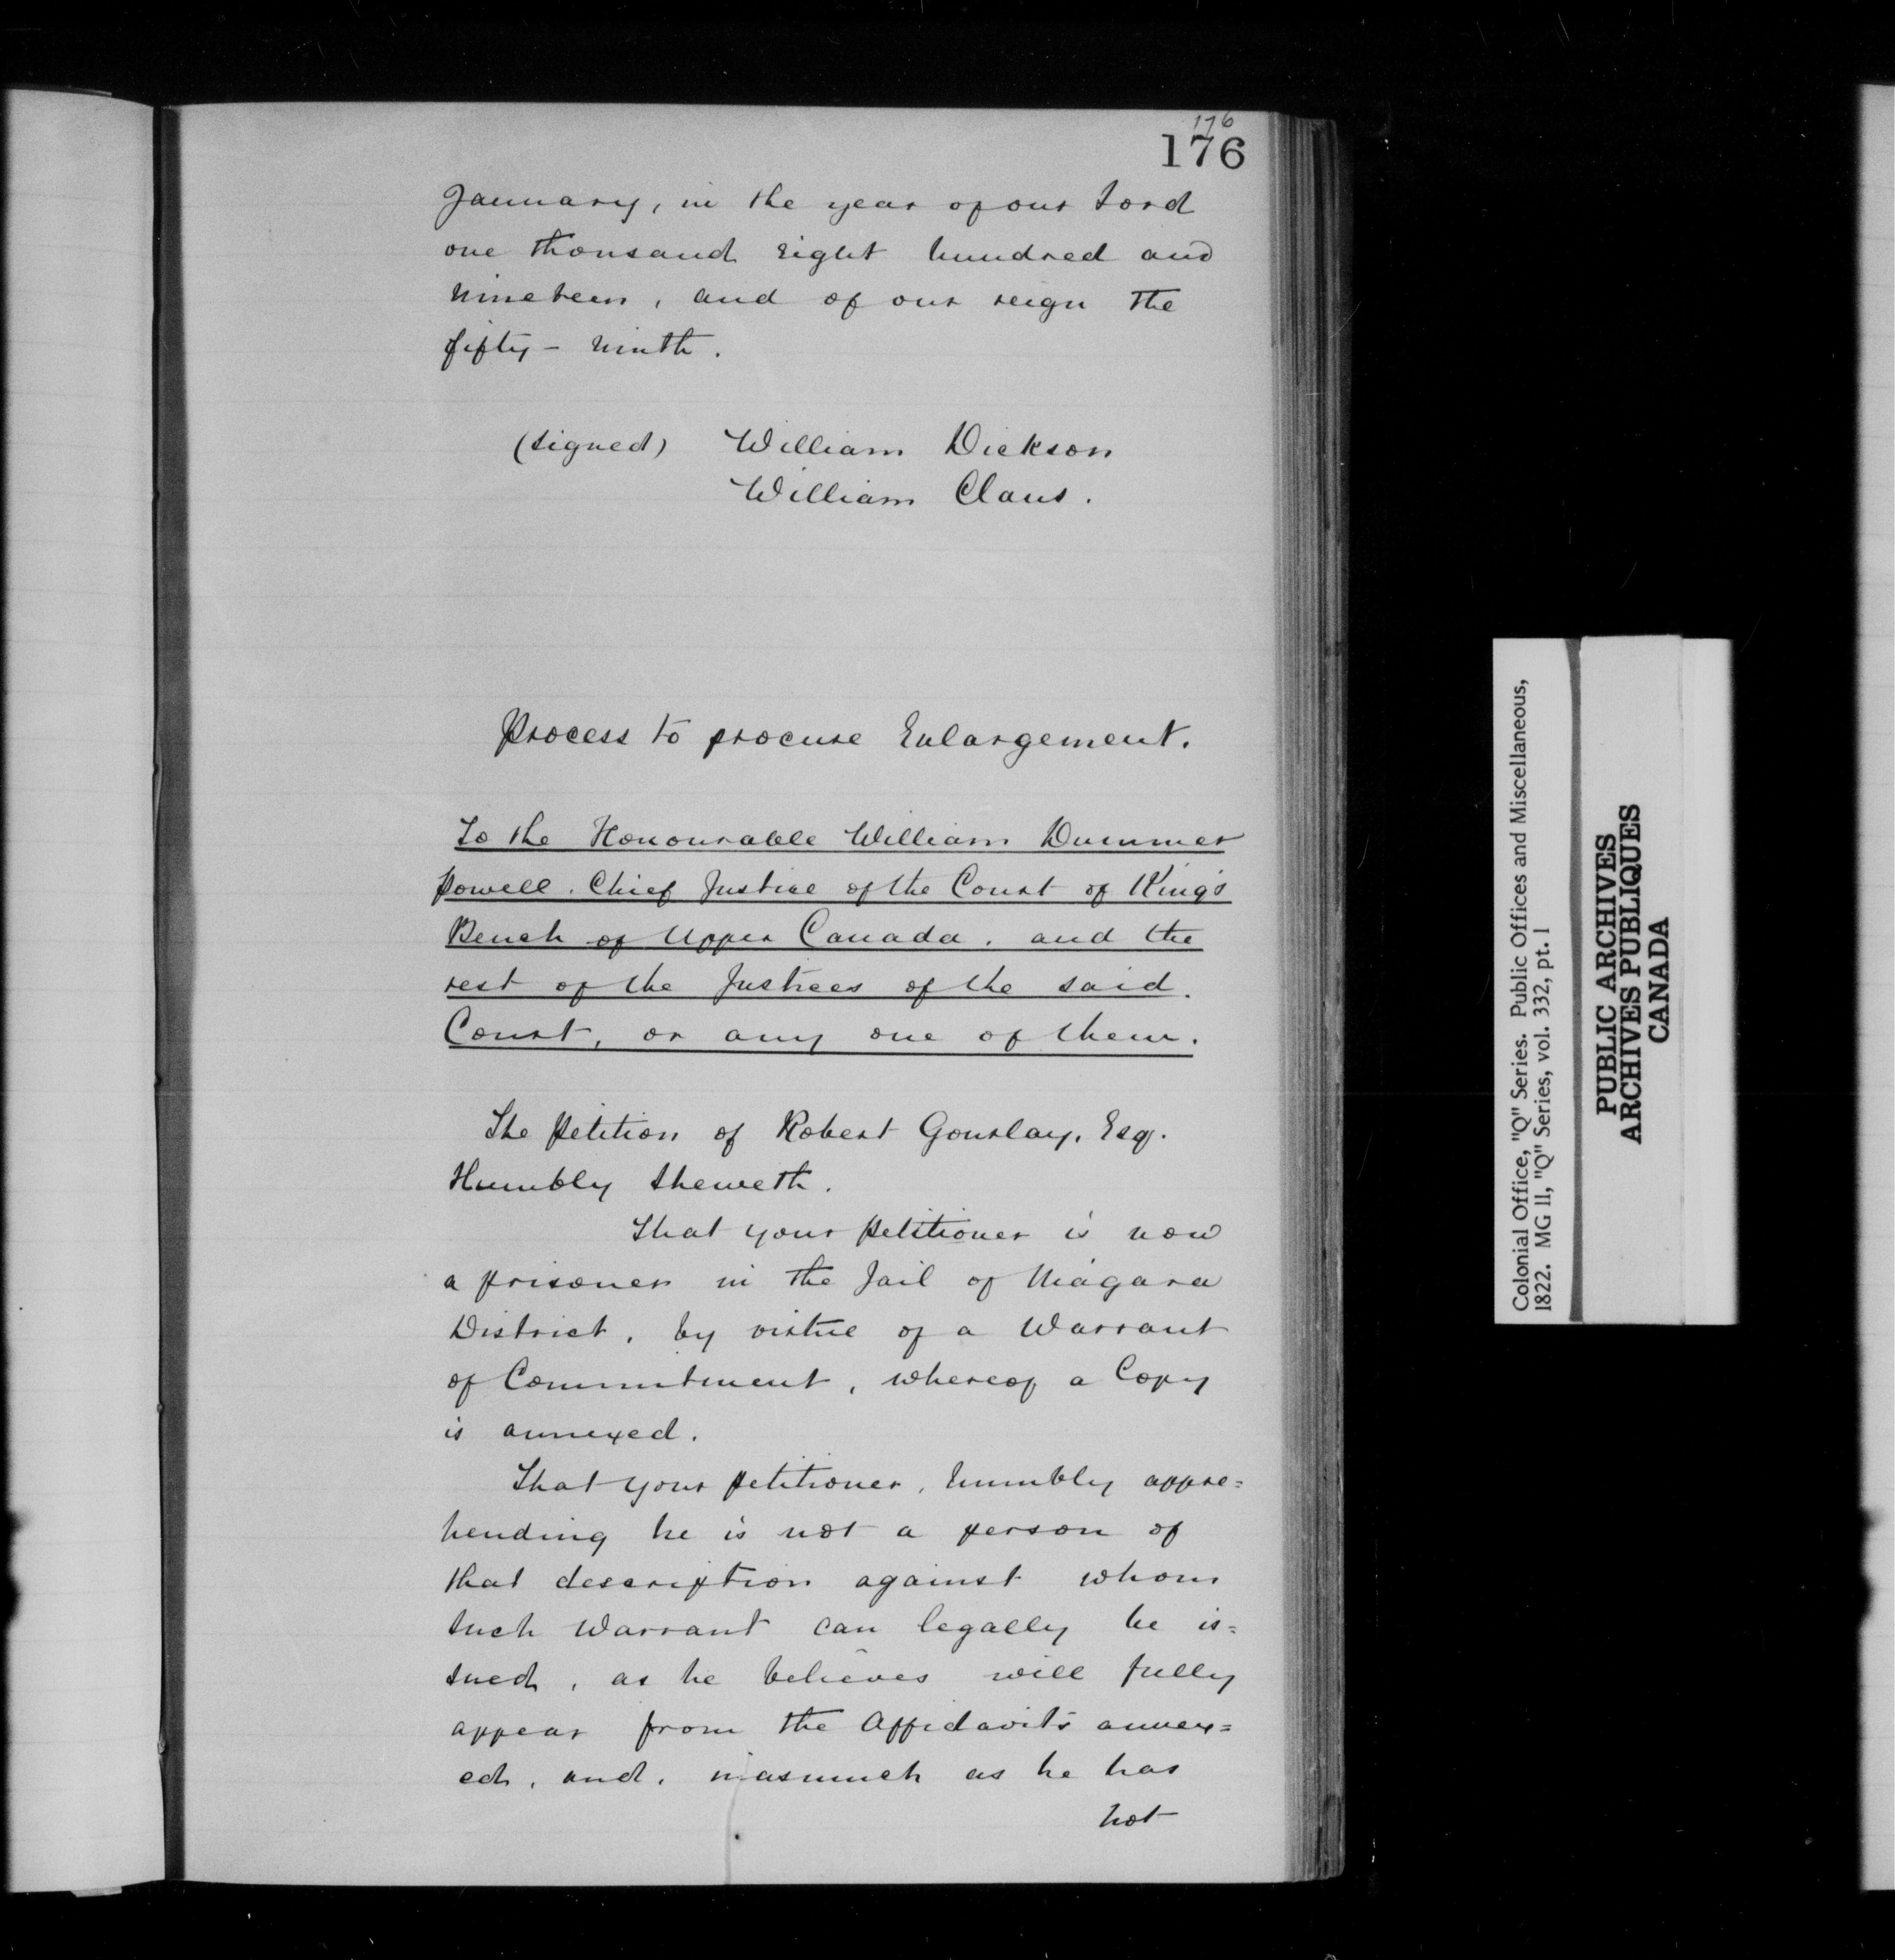 176
176
January, in the year of our Lord
one thousand eight hundred and
nineteen, and of our reign the
fifty - ninth.
(signed) William Dickson
William Claus.
Process to procure Enlargement.
To the Honourable William Dummer
Powell. Chief Justice of the Court of King's
Bench of Upper Canada, and the
rest of the Justices of the said.
Court, or any one of them.
The Petition of Robert Gourlay, Esq.
Humbly Sheweth.
That your Petitioner is now
a prisoner in the Jail of Niagara
District, by virtue of a Warrant
of Commitment, whereof a Copy
is annexed.
That your petitioner, humbly appre=
hending he is not a person of
that description against whom
such Warrant can legally be is=
sued, as he believes will fully
appear from the Affidavits annex=
ed, and, inasmuch as he has
not
Colonial Office, "Q" Series. Public Offices and Miscellaneous,
1822. MG 11, "Q" Series, vol. 332, pt. 1
PUBLIC ARCHIVES
ARCHIVES PUBLIQUES
CANADA